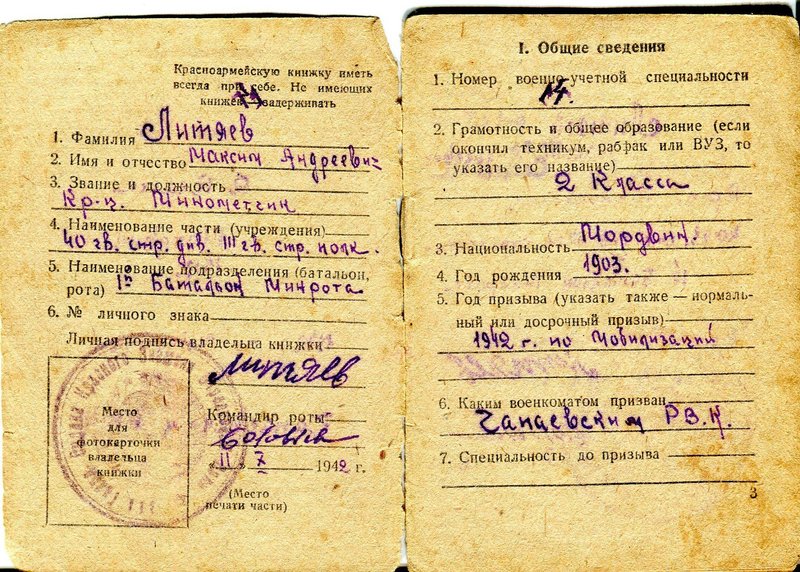 Красноармейскую книжку иметь
всегда при себе. Не имеющих
книжек — задерживать
1. Фамилия Литяев
2. Имя и отчество Максим Андреевич
3. Звание и должность
Кр-ц. Минометчик
4. Наименование части (учреждения)
40 гв. стр. див. 111 гв. стр. полк.
5. Наименование подразделения (батальон,
рота) 1й Батальон Минрота
6. № личного знака
Личная подпись владельца книжки
Литяев
Место
для
фотокарточки
владельца
книжки
Командир роты
„ 11 " X 1942 г.
(Место
печати части)
I. Общие сведения
1. Номер военно-учетной специальности
14.
2. Грамотность и общее образование (если
окончил техникум, рабфак или ВУЗ, то
указать его название)
2 Класса
3. Национальность Мордвин.
4. Год рождения 1903.
5. Год призыва (указать также — нормаль-
ный или досрочный призыв)
1942 г. по Мобилизации
6. Каким военкоматом призван
Чапаевским Р.В.К.
7. Специальность до призыва
3